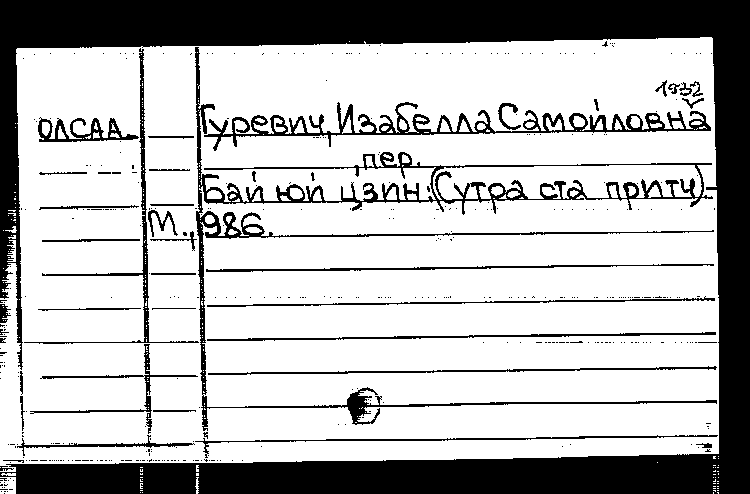 1932
ОЛСАА. Гуревич, Изабелла Самойловна
, пер.
Бай юй цзин: (Сутра ста притч)-
М., 986.